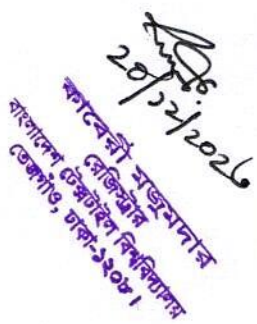 ২০/১২/২০২৬
কাবেরী মজুমদার
রেজিস্ট্রার
বাংলাদেশ টেক্সটাইল বিশ্ববিদ্যালয়
তেজগাঁও, ঢাকা-১২০৮।